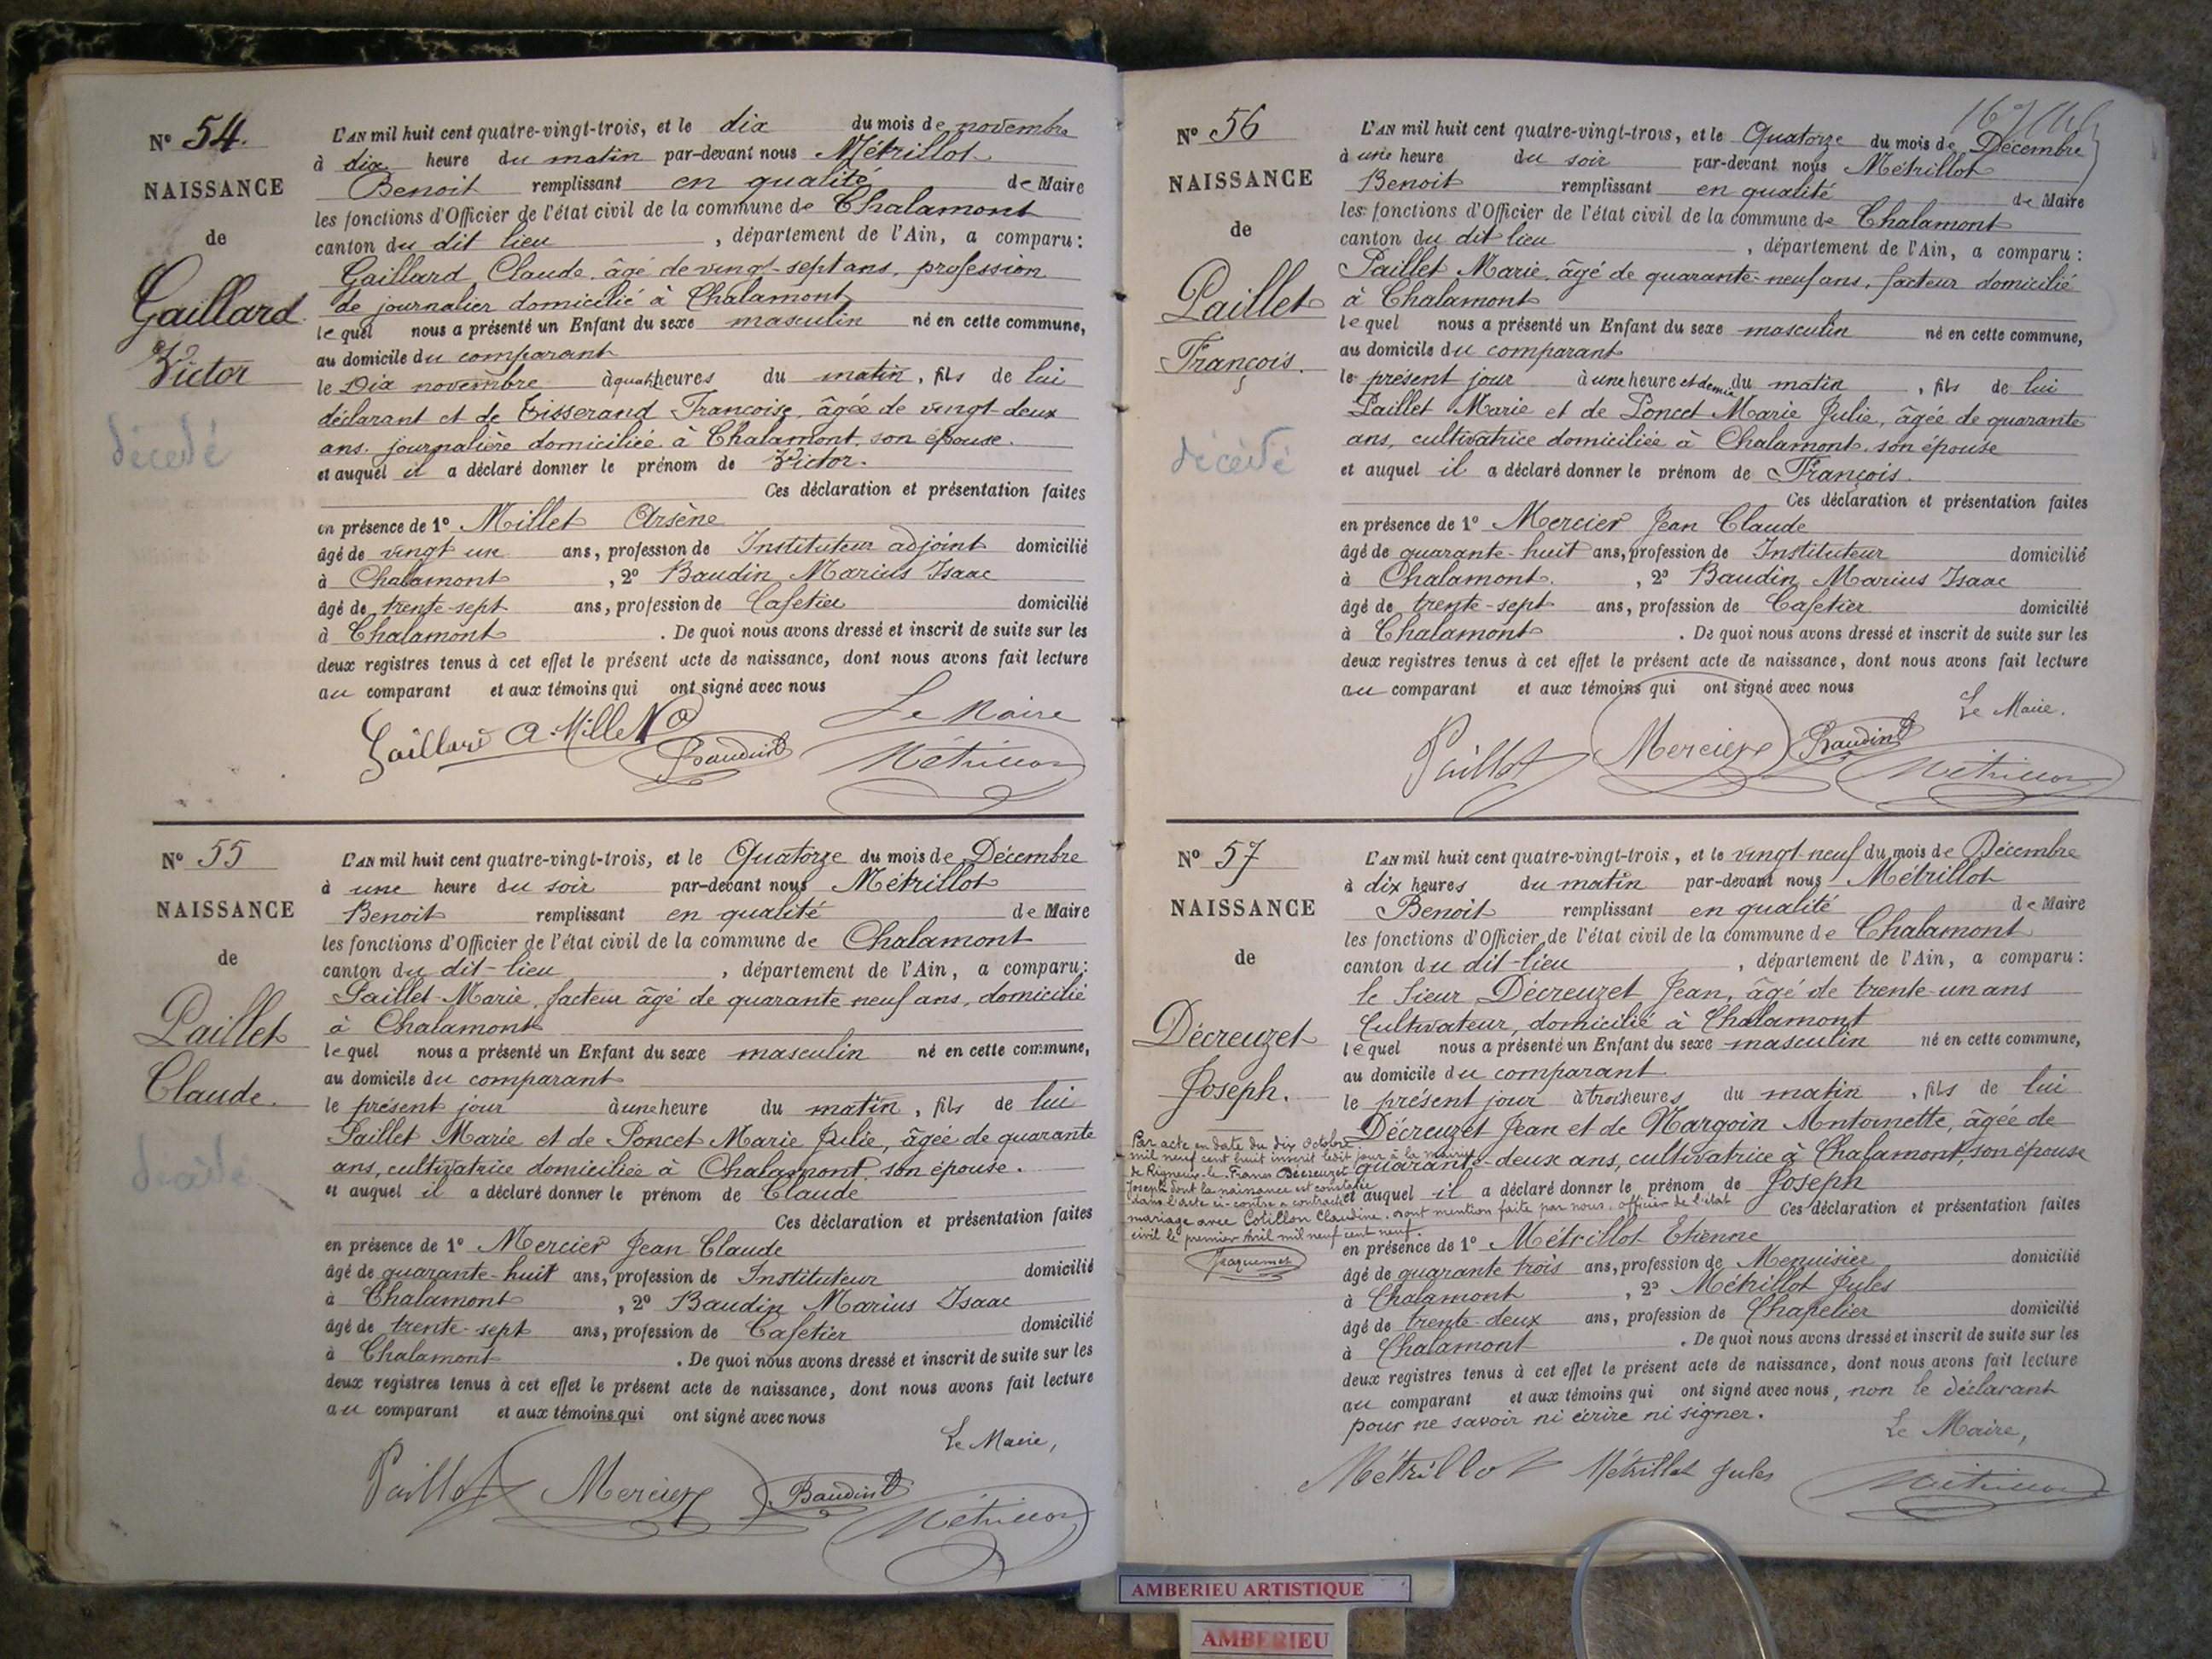 N° 54.
NAISSANCE
de
Gaillard
Victor
décédé
L'AN mil huit cent quatre-vingt-trois, et le dix du mois de novembre
à dix heure du matin par-devant nous Métrillot
Benoit remplissant en qualité de Maire
les fonctions d'Officier de l'état civil de la commune de Chalamont
canton du dit lieu , département de l'Ain, a comparu :
Gaillard Claude, âgé de vingt-sept ans, profession
de journalier domicilié à Chalamont
lequel nous a présenté un Enfant du sexe masculin né en cette commune,
au domicile du comparant
le Dix novembre à quatre heures du matin, fils de lui
déclarant et de Tisserand Françoise, âgée de vingt-deux
ans, journalière domiciliée à Chalamont, son épouse.
et auquel il a déclaré donner le prénom de Victor.
Ces déclaration et présentation faites
en présence de 1° Millet Arsène
âgé de vingt un ans, profession de Instituteur adjoint domicilié
à Chalamont , 2° Baudin Marius Isaac
âgé de trente-sept ans, profession de Cafetier domicilié
à Chalamont . De quoi nous avons dressé et inscrit de suite sur les
deux registres tenus à cet effet le présent acte de naissance, dont nous avons fait lecture
au comparant et aux témoins qui ont signé avec nous
Le Maire
Gaillard A. Millet Baudin Métrillot
N° 55
NAISSANCE
de
Paillet
Claude.
décédé
L'AN mil huit cent quatre-vingt-trois, et le Quatorze du mois de Décembre
à une heure du soir par-devant nous Métrillot
Benoit remplissant en qualité de Maire
les fonctions d'Officier de l'état civil de la commune de Chalamont
canton du dit-lieu , département de l'Ain, a comparu :
Paillet Marie, facteur âgé de quarante neuf ans, domicilié
à Chalamont
lequel nous a présenté un Enfant du sexe masculin né en cette commune,
au domicile du comparant
le présent jour à une heure du matin, fils de lui
Paillet Marie et de Poncet Marie Julie, âgée de quarante
ans, cultivatrice domiciliée à Chalamont, son épouse.
et auquel il a déclaré donner le prénom de Claude
Ces déclaration et présentation faites
en présence de 1° Mercier Jean Claude
âgé de quarante-huit ans, profession de Instituteur domicilié
à Chalamont , 2° Baudin Marius Isaac
âgé de trente-sept ans, profession de Cafetier domicilié
à Chalamont . De quoi nous avons dressé et inscrit de suite sur les
deux registres tenus à cet effet le présent acte de naissance, dont nous avons fait lecture
au comparant et aux témoins qui ont signé avec nous
Le Maire,
Paillet Mercier Baudin Métrillot
N° 56
NAISSANCE
de
Paillet
François.
décédé
L'AN mil huit cent quatre-vingt-trois, et le Quatorze du mois de Décembre
à une heure du soir par-devant nous Métrillot
Benoit remplissant en qualité de Maire
les fonctions d'Officier de l'état civil de la commune de Chalamont
canton du dit lieu , département de l'Ain, a comparu :
Paillet Marie, âgé de quarante-neuf ans, facteur domicilié
à Chalamont
lequel nous a présenté un Enfant du sexe masculin né en cette commune,
au domicile du comparant
le présent jour à une heure et demie du matin , fils de lui
Paillet Marie et de Poncet Marie Julie, âgée de quarante
ans, cultivatrice domiciliée à Chalamont, son épouse
et auquel il a déclaré donner le prénom de François.
Ces déclaration et présentation faites
en présence de 1° Mercier Jean Claude
âgé de quarante-huit ans, profession de Instituteur domicilié
à Chalamont. , 2° Baudin Marius Isaac
âgé de trente-sept ans, profession de Cafetier domicilié
à Chalamont . De quoi nous avons dressé et inscrit de suite sur les
deux registres tenus à cet effet le présent acte de naissance, dont nous avons fait lecture
au comparant et aux témoins qui ont signé avec nous
Le Maire.
Paillet Mercier Baudin Métrillot
N° 57
NAISSANCE
de
Décreuzet
Joseph.
Par acte en date du dix Octobre
mil neuf cent huit inscrit ledit jour à la mairie
de Rigneux-le-Franc Décreuzet
Joseph dont la naissance est constatée
dans l'acte ci-contre a contracté
mariage avec Cotillon Claudine. dont mention faite par nous, officier de l'état
civil le premier Avril mil neuf cent neuf.
Jacquemet
L'AN mil huit cent quatre-vingt-trois, et le vingt-neuf du mois de Décembre
à dix heures du matin par-devant nous Métrillot
Benoit remplissant en qualité de Maire
les fonctions d'Officier de l'état civil de la commune de Chalamont
canton du dit-lieu , département de l'Ain, a comparu :
le Sieur Décreuzet Jean, âgé de trente-un ans
Cultivateur, domicilié à Chalamont
lequel nous a présenté un Enfant du sexe masculin né en cette commune,
au domicile du comparant
le présent jour à trois heures du matin , fils de lui
Décreuzet Jean et de Margoin Antoinette, âgée de
quarante-deux ans, cultivatrice à Chalamont, son épouse
et auquel il a déclaré donner le prénom de Joseph
Ces déclaration et présentation faites
en présence de 1° Métrillot Etienne
âgé de quarante trois ans, profession de Menuisier domicilié
à Chalamont , 2° Métrillot Jules
âgé de trente-deux ans, profession de Chapelier domicilié
à Chalamont . De quoi nous avons dressé et inscrit de suite sur les
deux registres tenus à cet effet le présent acte de naissance, dont nous avons fait lecture
au comparant et aux témoins qui ont signé avec nous, non le déclarant
pour ne savoir ni écrire ni signer.
Le Maire,
Métrillot Métrillot Jules Métrillot
AMBERIEU ARTISTIQUE
AMBERIEU